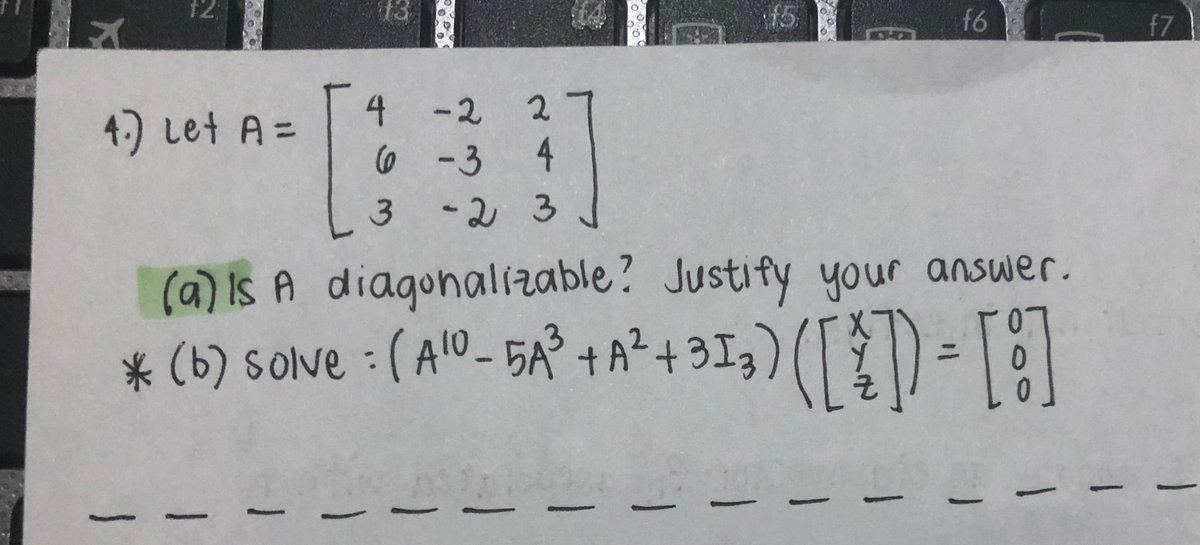 f1 f2 f3 f4 f5 f6 f7
4.) Let A = [ 4 -2 2
6 -3 4
3 -2 3 ]
(a) Is A diagonalizable? Justify your answer.
* (b) solve : (A¹⁰ - 5A³ + A² + 3I₃) ([ x y z ]) = [ 0 0 0 ]